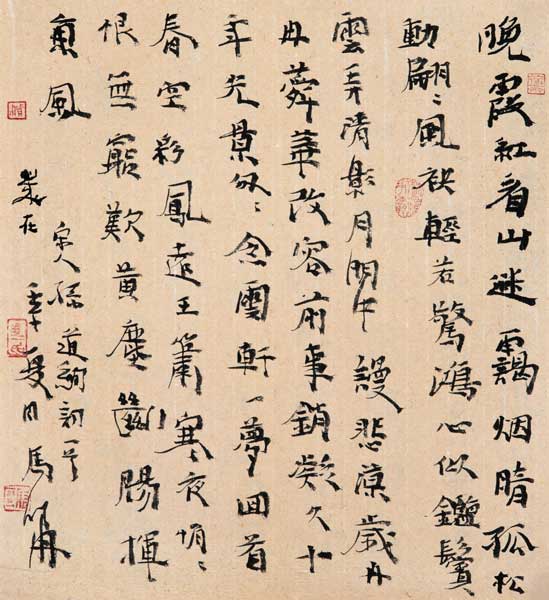 晚霞紅看山迷靄烟暗孤松
動翩〻風袂輕若驚鴻心似鑑鬢
雲弄清影月明中謾悲凉歲冉
冉蕣華改容前事銷凝久十
年光景匆〻念雲軒一夢回首
春空彩鳳遠玉簫寒夜悄〻
恨無窮歎黃塵斷腸揮
東風
宋人孫道絢詞一首
歲在壬午夏日馬